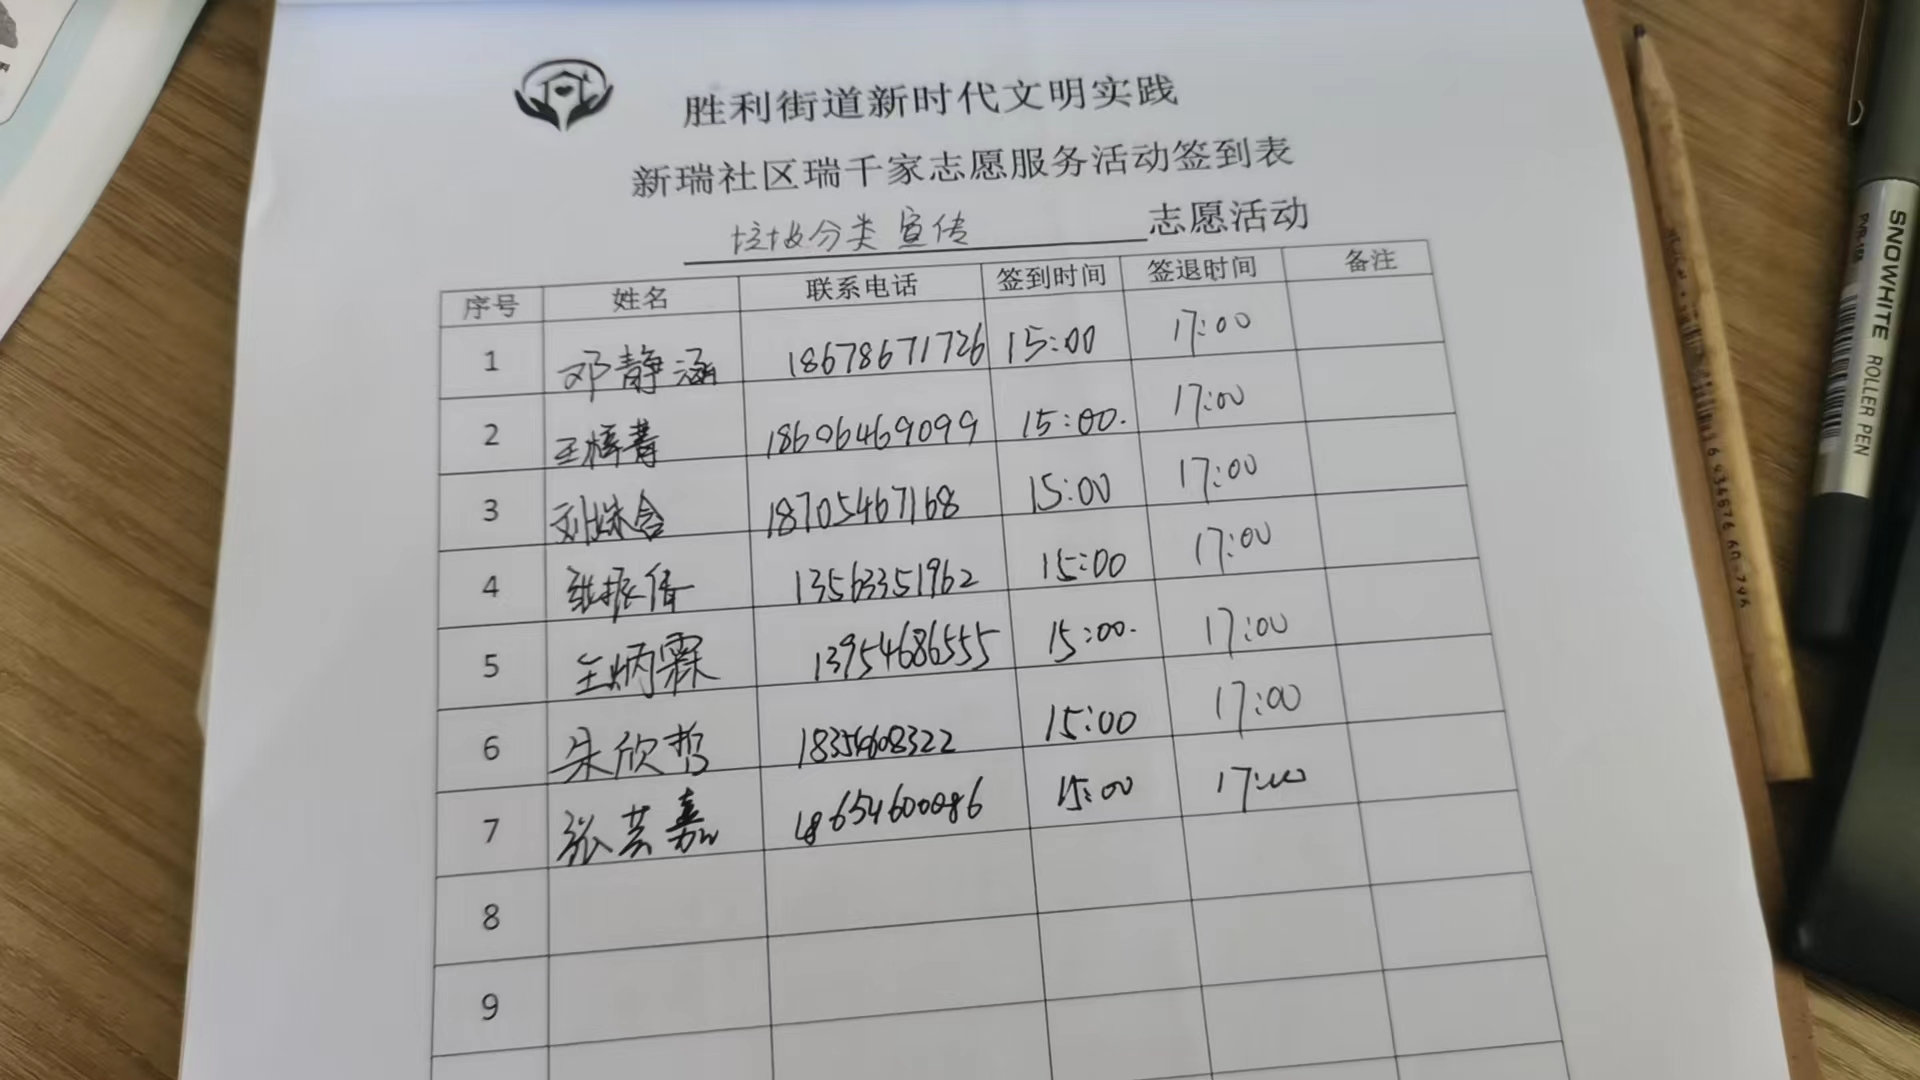 胜利街道新时代文明实践
新瑞社区瑞千家志愿服务活动签到表
垃圾分类宣传 志愿活动
序号 姓名 联系电话 签到时间 签退时间 备注
1 邓静涵 18678671726 15:00 17:00
2 王梓菁 18606469099 15:00. 17:00
3 刘姝含 18705467168 15:00 17:00
4 张振倩 13563351962 15:00 17:00
5 王炳霖 13954686555 15:00. 17:00
6 朱欣哲 15:00 17:00
7 张芸嘉 18654600086 15:00 17:00
8
9
SNOWHITE ROLLER PEN